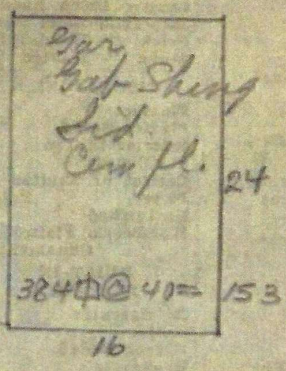 Gar
Gab Shing
Sid
Cem fl.
24
384⌷@ 40= 153
16